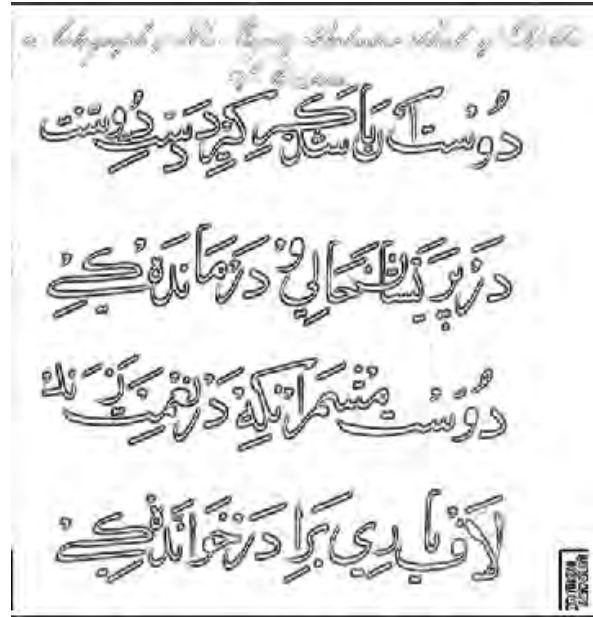 دوست آن باشد که گیرد دست دوست
در پریشان حالي و درمانده كي
دوست مشمر انکه در نعمت زند
لاف ياري برادر خوانده كي